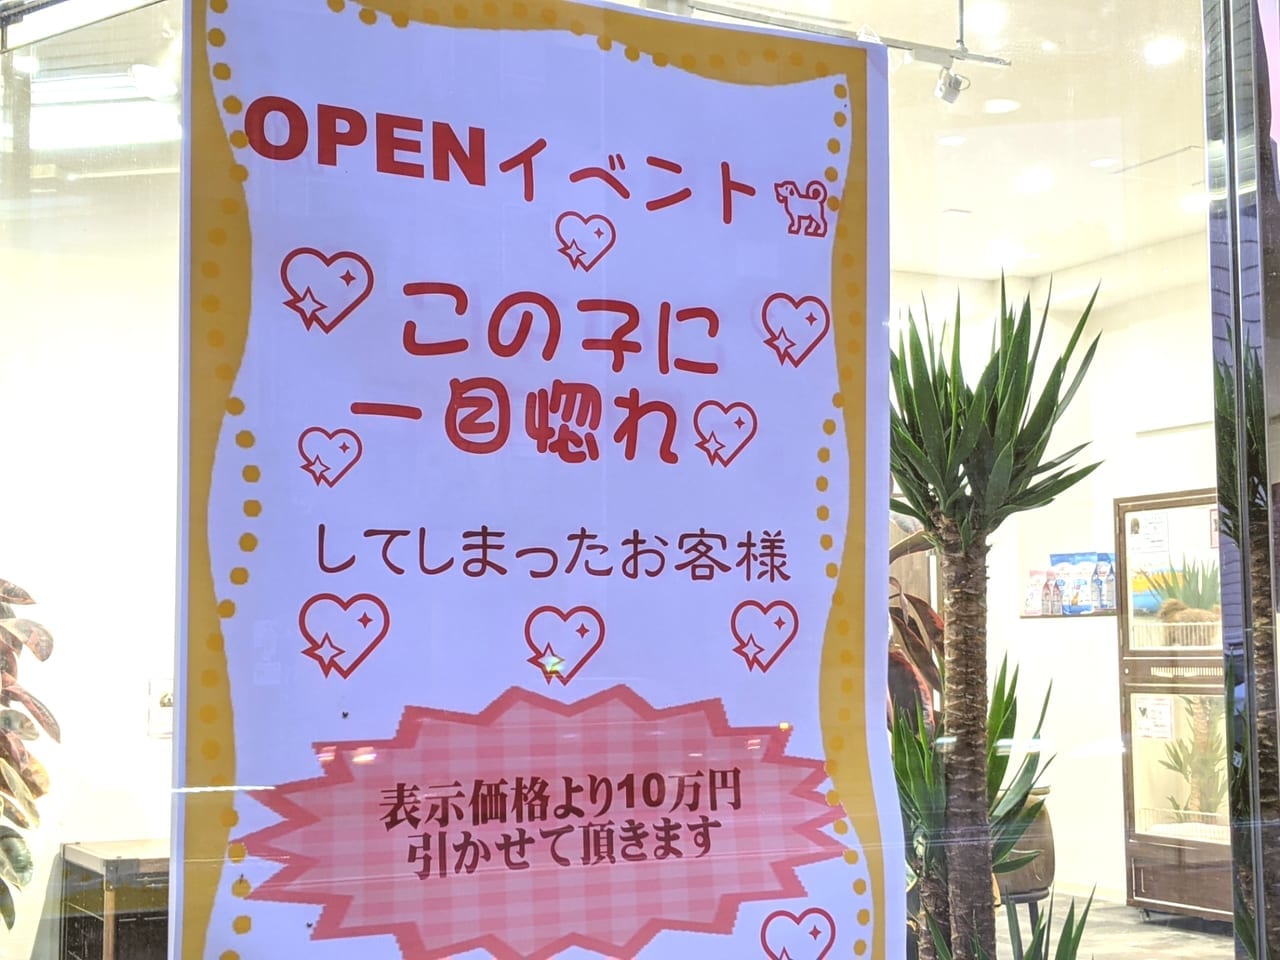 OPENイベント
この子に
一目惚れ
してしまったお客様
表示価格より10万円
引かせて頂きます